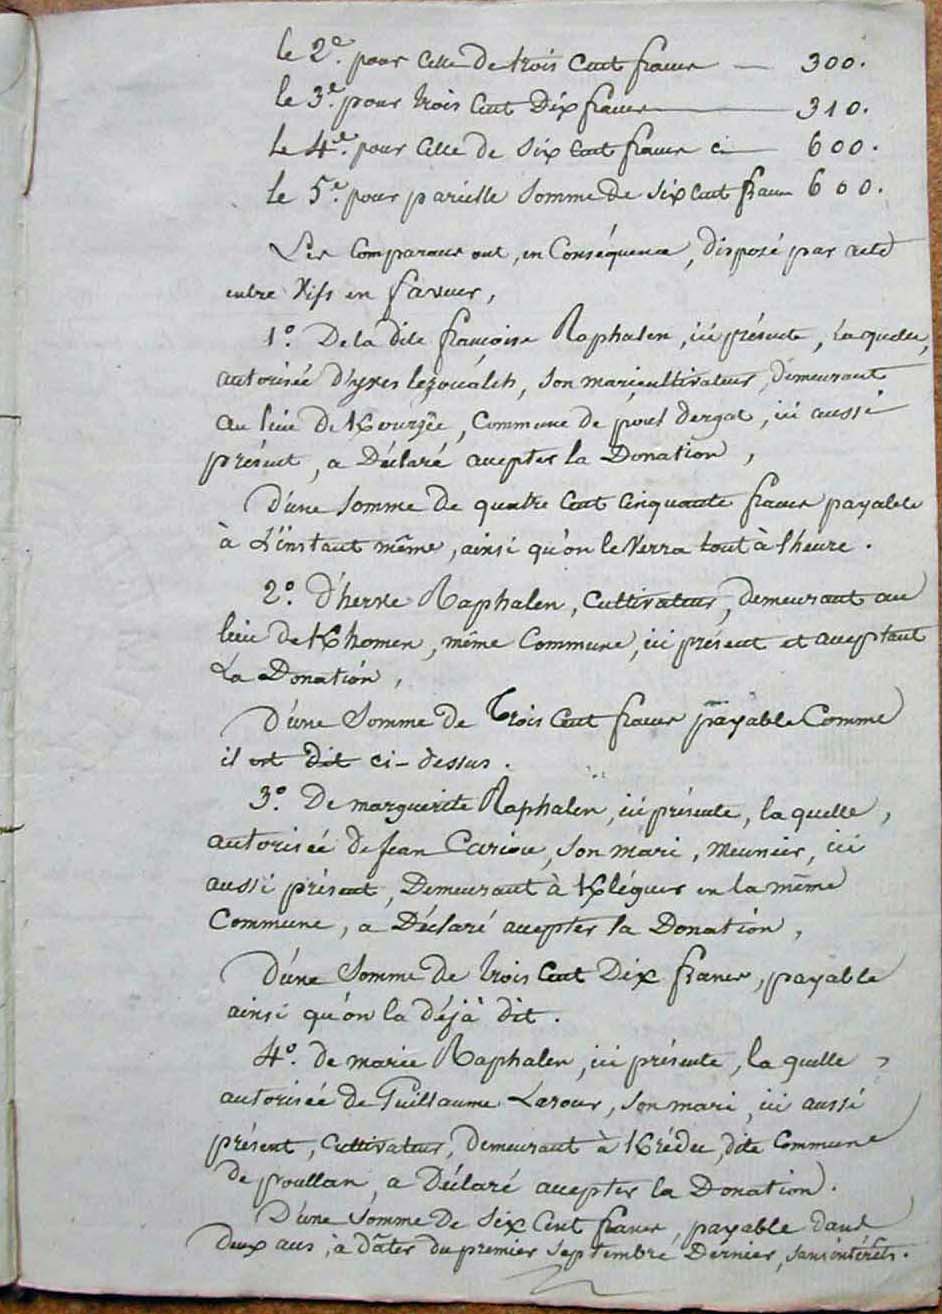 le 2e. pour Celle de trois Cent francs — 300.
le 3e. pour trois Cent Dix francs — 310.
le 4e. pour Celle de Six Cent francs ci — 600.
le 5e. pour pareille Somme de Six Cent francs 600.
Les Comparans ont, en Conséquence, disposé par acte
entre Vifs en faveur,
1o. De la dite françoise Raphalen, ici présente, laquelle,
autorisée d'yves le, son mari, cultivateur, demeurant
au lieu de, Commune de poul dergat, ici aussi
présent, a Déclaré accepter la Donation,
D'une Somme de quatre Cent Cinquante francs payable
à L'instant même, ainsi qu'on le Verra tout à l'heure.
2o. d'herve Raphalen, Cultivateur, demeurant au
lieu de Khomen, même Commune, ici présent et acceptant
La Donation,
D'une Somme de Trois Cent francs payable Comme
il est dit ci-dessus.
3o. De marguerite Raphalen, ici présente, la quelle,
autorisée de Jean Cariou, Son mari, Meunier, ici
aussi présent, Demeurant à Kléguer en la même
Commune, a Déclaré accepter la Donation,
D'une Somme de trois Cent Dix francs, payable
ainsi qu'on la déjà dit.
4o. de marie Raphalen, ici présente, la quelle,
autorisée de Guillaume Larour, Son mari, ici aussi
présent, Cultivateur, demeurant à Krédec, dite Commune
de poullan, a Déclaré accepter la Donation.
D'une Somme de Six Cent francs, payable dans
deux ans, à dâter du premier Septembre Dernier, sans intérêts.